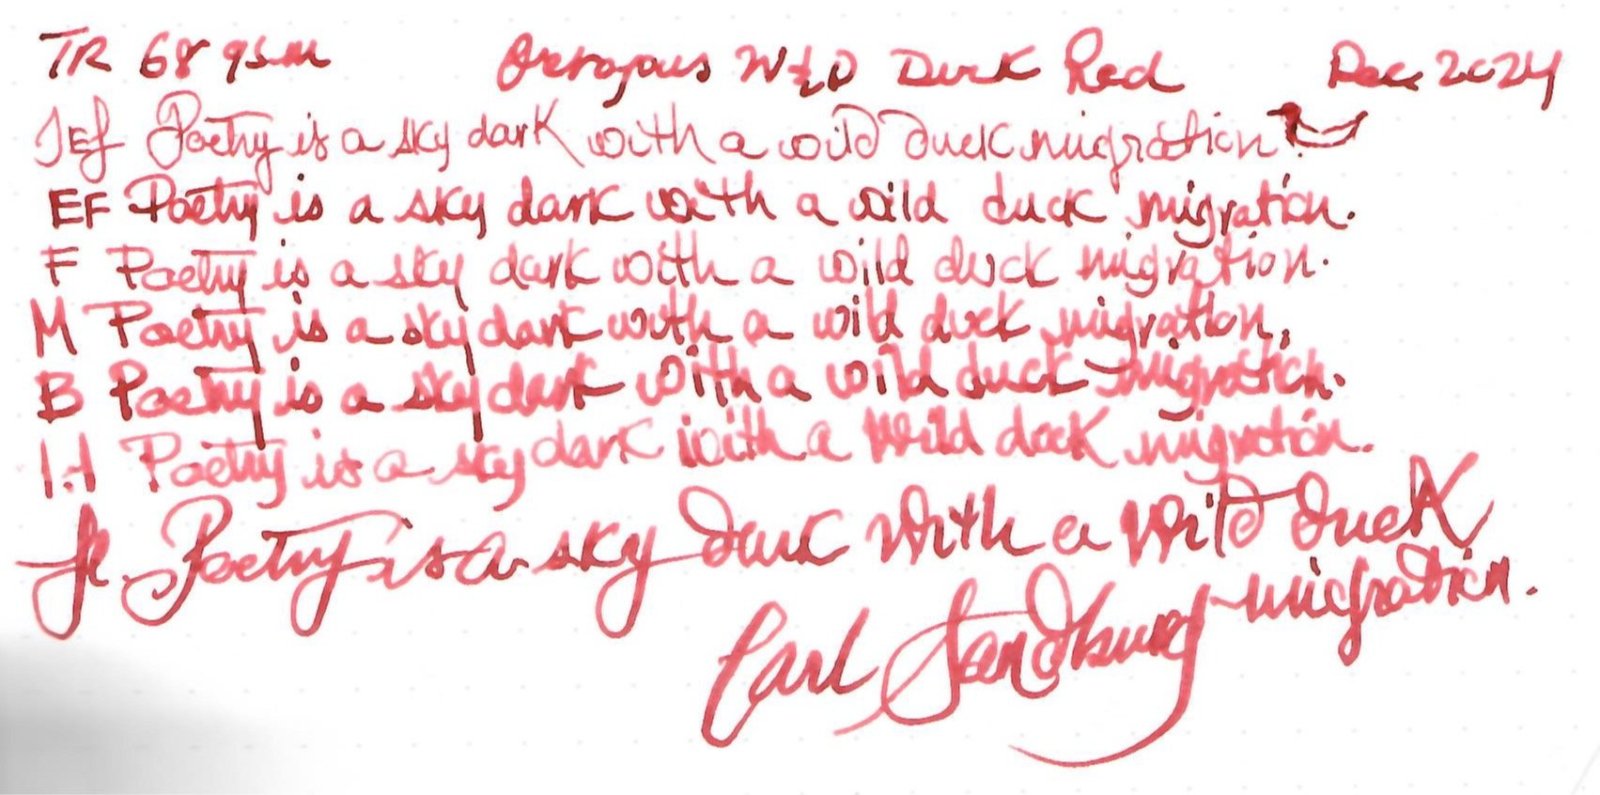 TR 68 gsm Octopus W&D Duck Red Dec 2024
JEF Poetry is a sky dark with a wild duck migration.
EF Poetry is a sky dark with a wild duck migration.
F Poetry is a sky dark with a wild duck migration.
M Poetry is a sky dark with a wild duck migration.
B Poetry is a sky dark with a wild duck migration.
1.1 Poetry is a sky dark with a wild duck migration.
Poetry is a sky dark with a wild duck
migration.
Carl Sandburg